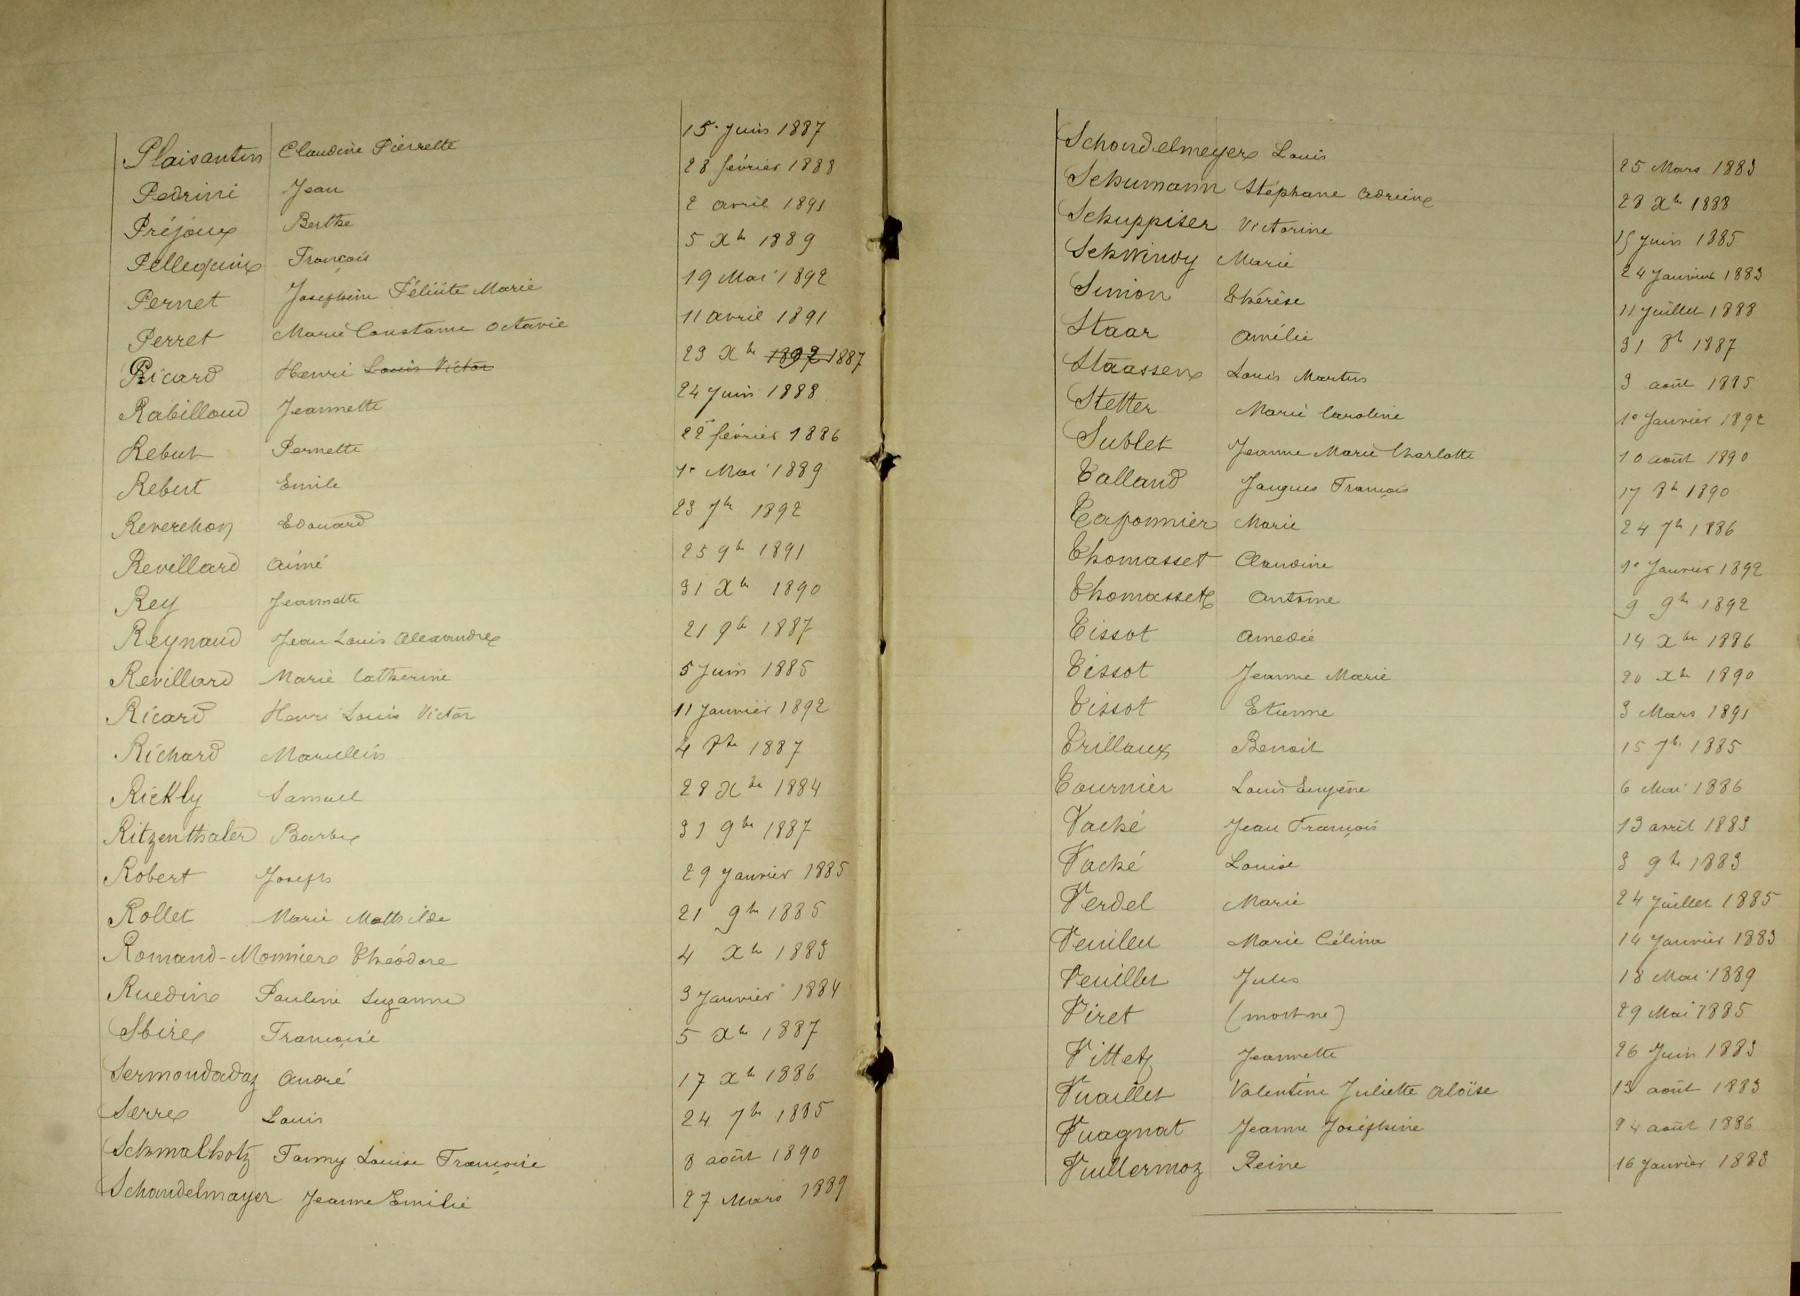 Plaisantin Claudine Pierrette 15 Juin 1887
Pedrini Jean 28 février 1888
Préjoux Berthe 2 avril 1891
Pellequin François 5 Xbre 1889
Pernet Joséphine Félicité Marie 19 Mai 1892
Perret Marie Constance Octavie 11 avril 1891
Ricard Henri Louis Victor 23 Xbre 1892 1887
Rabilloud Jeannette 24 Juin 1888
Rebut Pernette 22 février 1886
Rebut Emile 1er Mai 1889
Reverchon Edouard 23 7bre 1892
Revillard Aimé 25 9bre 1891
Rey Jeannette 31 Xbre 1890
Reynaud Jean Louis Alexandre 21 9bre 1887
Revillard Marie Catherine 5 Juin 1885
Ricard Henri Louis Victor 11 Janvier 1892
Richard Marcellin 4 8bre 1887
Rickly Samuel 28 Xbre 1884
Ritzenthaler Barbe 31 9bre 1887
Robert Joseph 29 Janvier 1885
Rollet Marie Mathilde 21 9bre 1885
Romand-Monnier Théodore 4 Xbre 1883
Ruedin Pauline Suzanne 3 Janvier 1884
Sbire Françoise 5 Xbre 1887
Sermondadaz André 17 Xbre 1886
Serre Louis 24 7bre 1885
Schmalhotz Fanny Louise Françoise 8 août 1890
Schandelmayer Jeanne Emilie 27 Mars 1889
Schondelmeyer Louis 25 Mars 1883
Schumann Stéphane Adrien 28 Xbre 1888
Schuppiser Victorine 15 Juin 1885
Schwindy Marie 24 Janvier 1883
Simon Thérèse 11 Juillet 1888
Staar Amélie 31 8bre 1887
Staassen Louis Martin 3 août 1885
Stetter Marie Caroline 1er Janvier 1892
Sublet Jeanne Marie Charlotte 10 août 1890
Talland Jacques François 17 8bre 1890
Taponnier Marie 24 7bre 1886
Thomasset Claudine 1er Janvier 1892
Thomasset Antoine 9 9bre 1892
Tissot Amédée 14 Xbre 1886
Tissot Jeanne Marie 20 Xbre 1890
Tissot Etienne 3 Mars 1891
Trillaux Benoit 15 7bre 1885
Tournier Louis Eugène 6 Mai 1886
Vaché Jean François 13 avril 1883
Vaché Louise 3 9bre 1883
Verdel Marie 24 Juillet 1885
Veuileu Marie Célina 14 Janvier 1883
Veuillet Jules 18 Mai 1889
Viret (mort né) 29 Mai 1885
Vittetz Jeannette 26 Juin 1883
Vuaillet Valentine Juliette Aloïse 13 août 1883
Vuagnat Jeanne Joséphine 24 août 1886
Vuillermoz Reine 16 Janvier 1883